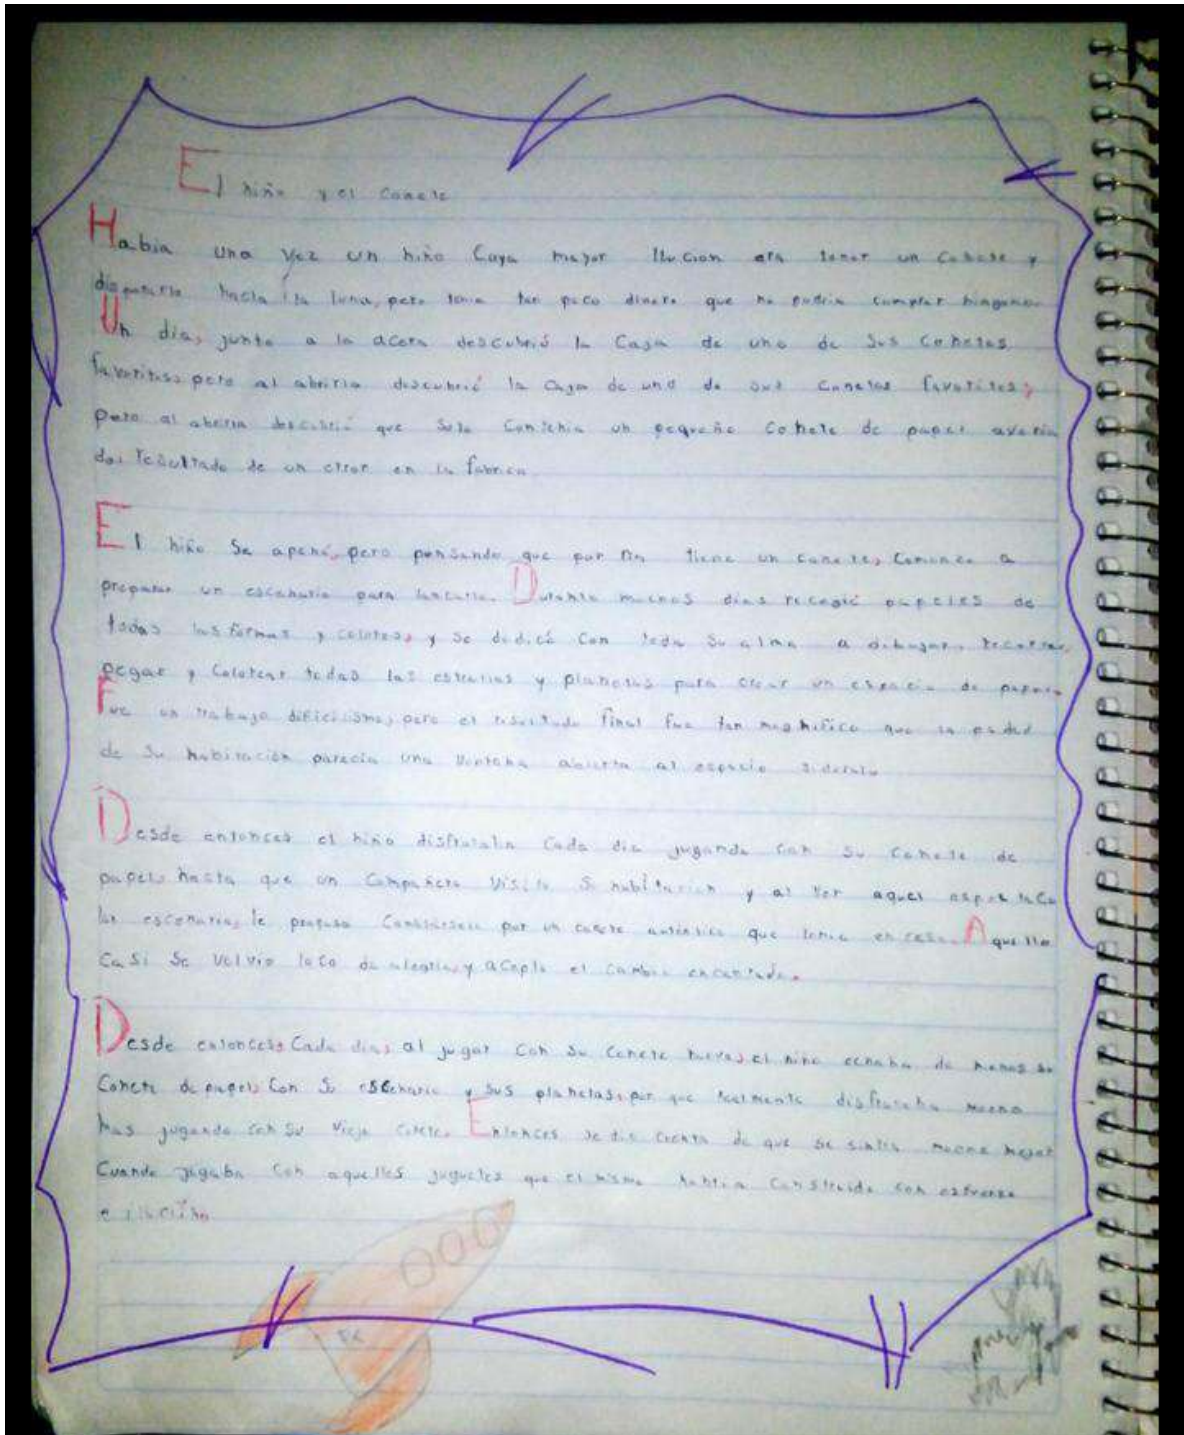 El niño y el cohete
Habia una vez un niño cuya mayor ilucion era tener un cohete y
dispararlo hacia la luna, pero tenia tan poco dinero que no podria comprar ninguno.
Un dia, junto a la acera descubrió la caja de uno de sus cohetes
favoritos, pero al abrirla descubrió la caja de uno de sus cohetes favoritos,
pero al abrirla descubrió que solo contenia un pequeño cohete de papel averia
do, resultado de un error en la fabrica.
El niño se apenó, pero pensando que por fin tiene un cohete, comenzo a
preparar un escenario para lanzarlo. Durante muchos dias recogió papeles de
todas las formas y colores, y se dedicó con toda su alma a dibujar, recortar,
pegar y colorear todas las estrellas y planetas para crear un espacio de papel.
Fue un trabajo dificilisimo, pero el resultado final fue tan magnifico que la pared
de su habitación parecia una ventana abierta al espacio sideral.
Desde entonces el niño disfrutaba cada dia jugando con su cohete de
papel, hasta que un compañero visito su habitacion y al ver aquel espectacu
lar escenario, le propuso cambiarselo por un cohete autentico que tenia en casa. Aquello
casi se volvio loco de alegria, y acepto el cambio encantado.
Desde entonces, cada dia, al jugar con su cohete nuevo, el niño echaba de menos su
cohete de papel, con su escenario y sus planetas, por que realmente disfrutaba mucho
mas jugando con su viejo cohete. Entonces se dio cuenta de que se sintia mucho mejor
cuando jugaba con aquellos juguetes que el mismo habia construido con esfuerzo
e ilución.